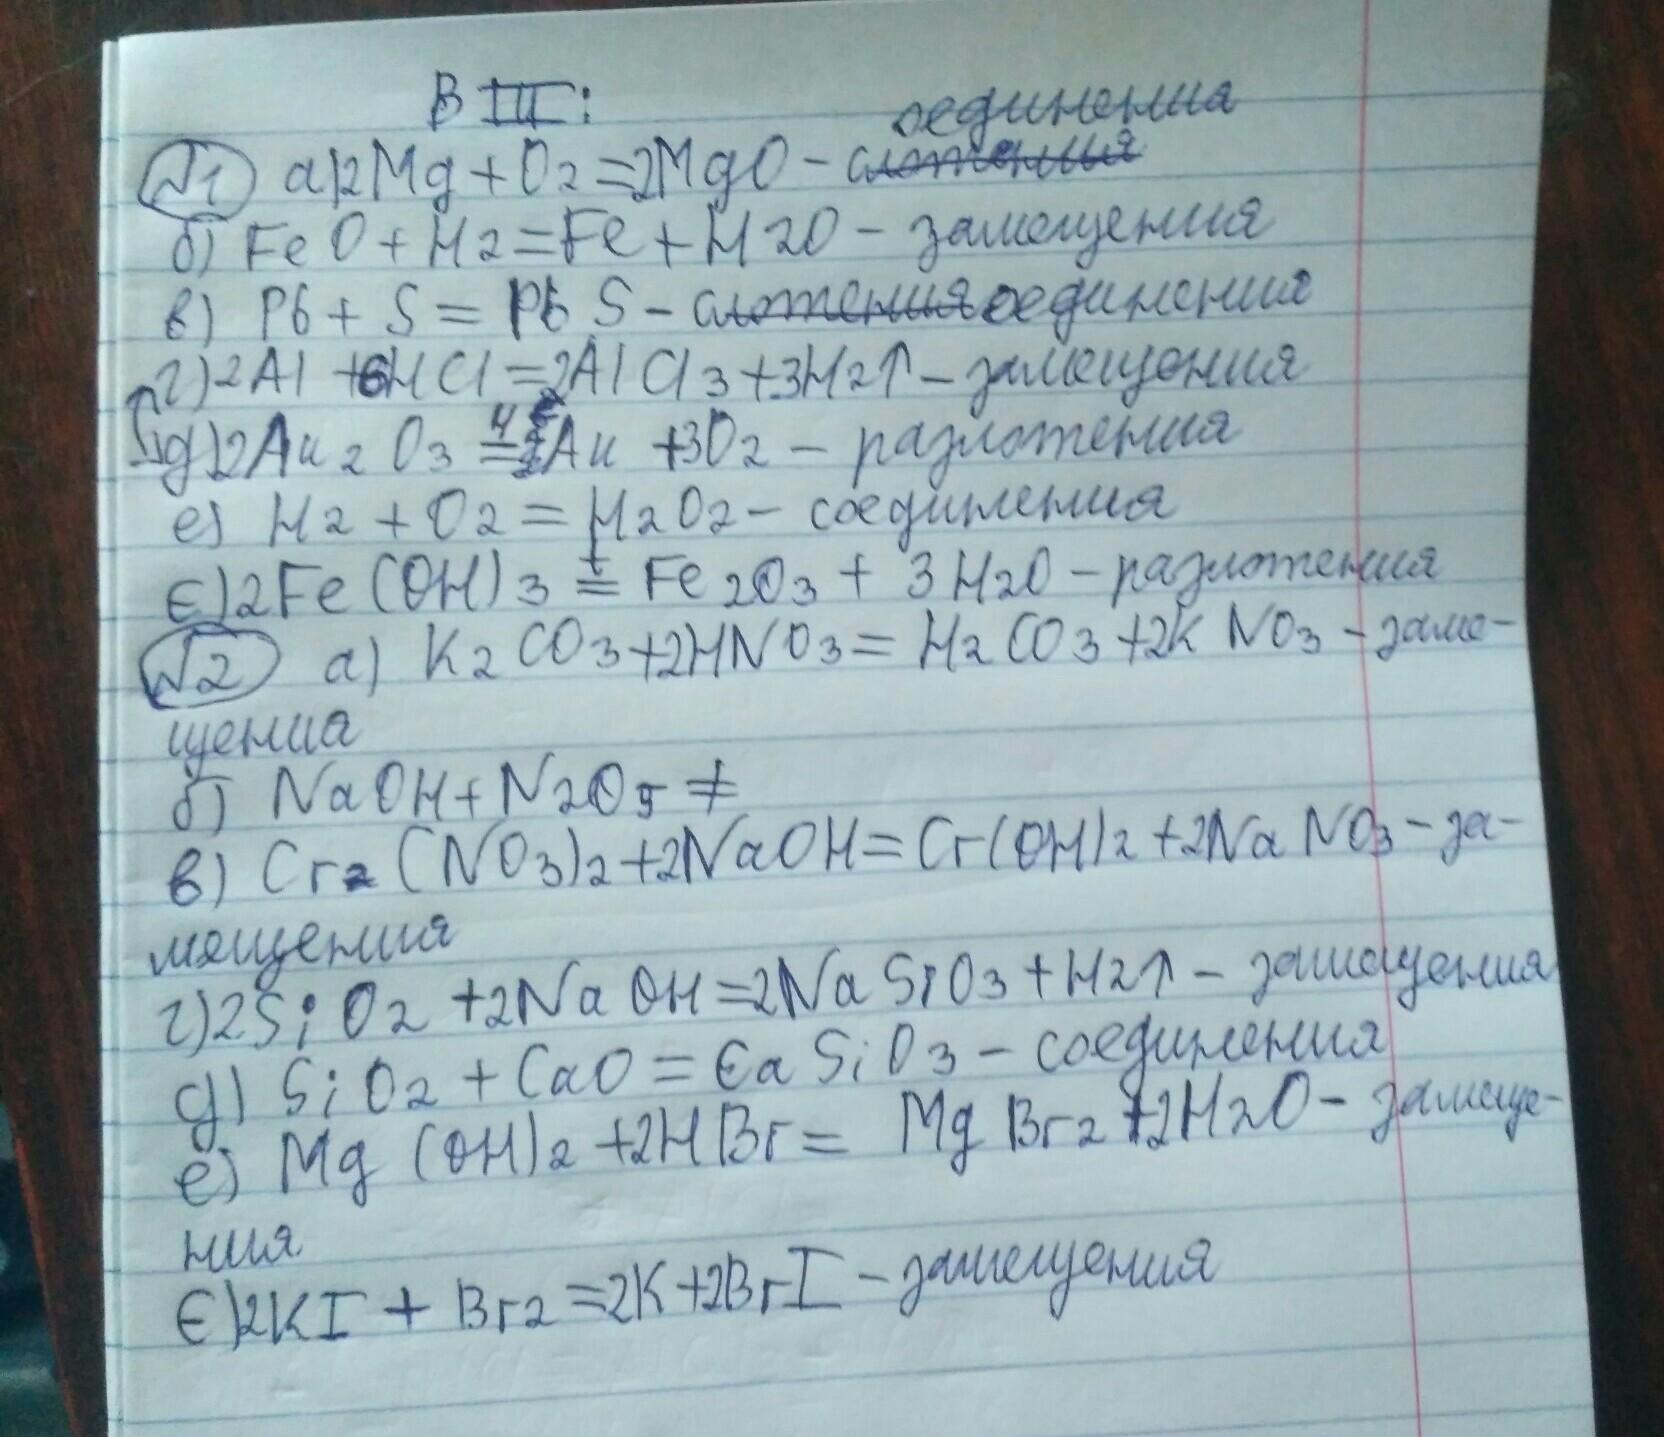 В III:
№1 а) 2Mg + O2 = 2MgO - соединения
б) FeO + H2 = Fe + H2O - замещения
в) Pb + S = PbS - соединения
г) 2Al + 6HCl = 2AlCl3 + 3H2↑ - замещения
д) 2Au2O3 = 4Au + 3O2 - разложения
е) H2 + O2 = H2O2 - соединения
є) 2Fe(OH)3 =t Fe2O3 + 3H2O - разложения
№2 а) K2CO3 + 2HNO3 = H2CO3 + 2KNO3 - заме-
щения
б) NaOH + N2O5 ≠
в) Cr2(NO3)2 + 2NaOH = Cr(OH)2 + 2NaNO3 - за-
мещения
г) 2SiO2 + 2NaOH = 2NaSiO3 + H2↑ - замещения
д) SiO2 + CaO = CaSiO3 - соединения
е) Mg(OH)2 + 2HBr = MgBr2 + 2H2O - замеще-
ния
є) 2KI + Br2 = 2K + 2BrI - замещения